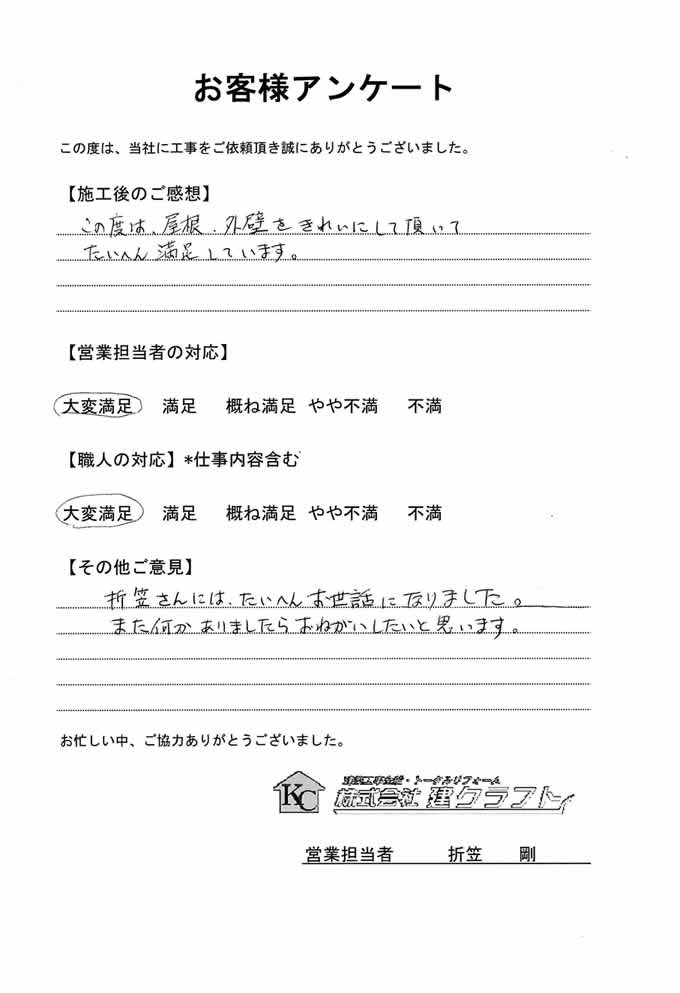 お客様アンケート
この度は、当社に工事をご依頼頂き誠にありがとうございました。
【施工後のご感想】
この度は、屋根、外壁をきれいにして頂いて
たいへん満足しています。
【営業担当者の対応】
大変満足 満足 概ね満足 やや不満 不満
【職人の対応】*仕事内容含む
大変満足 満足 概ね満足 やや不満 不満
【その他ご意見】
折笠さんには、たいへんお世話になりました。
また何かありましたらおねがいしたいと思います。
お忙しい中、ご協力ありがとうございました。
KC
・トータルリフォーム
株式会社 建クラフト
営業担当者 折笠 剛